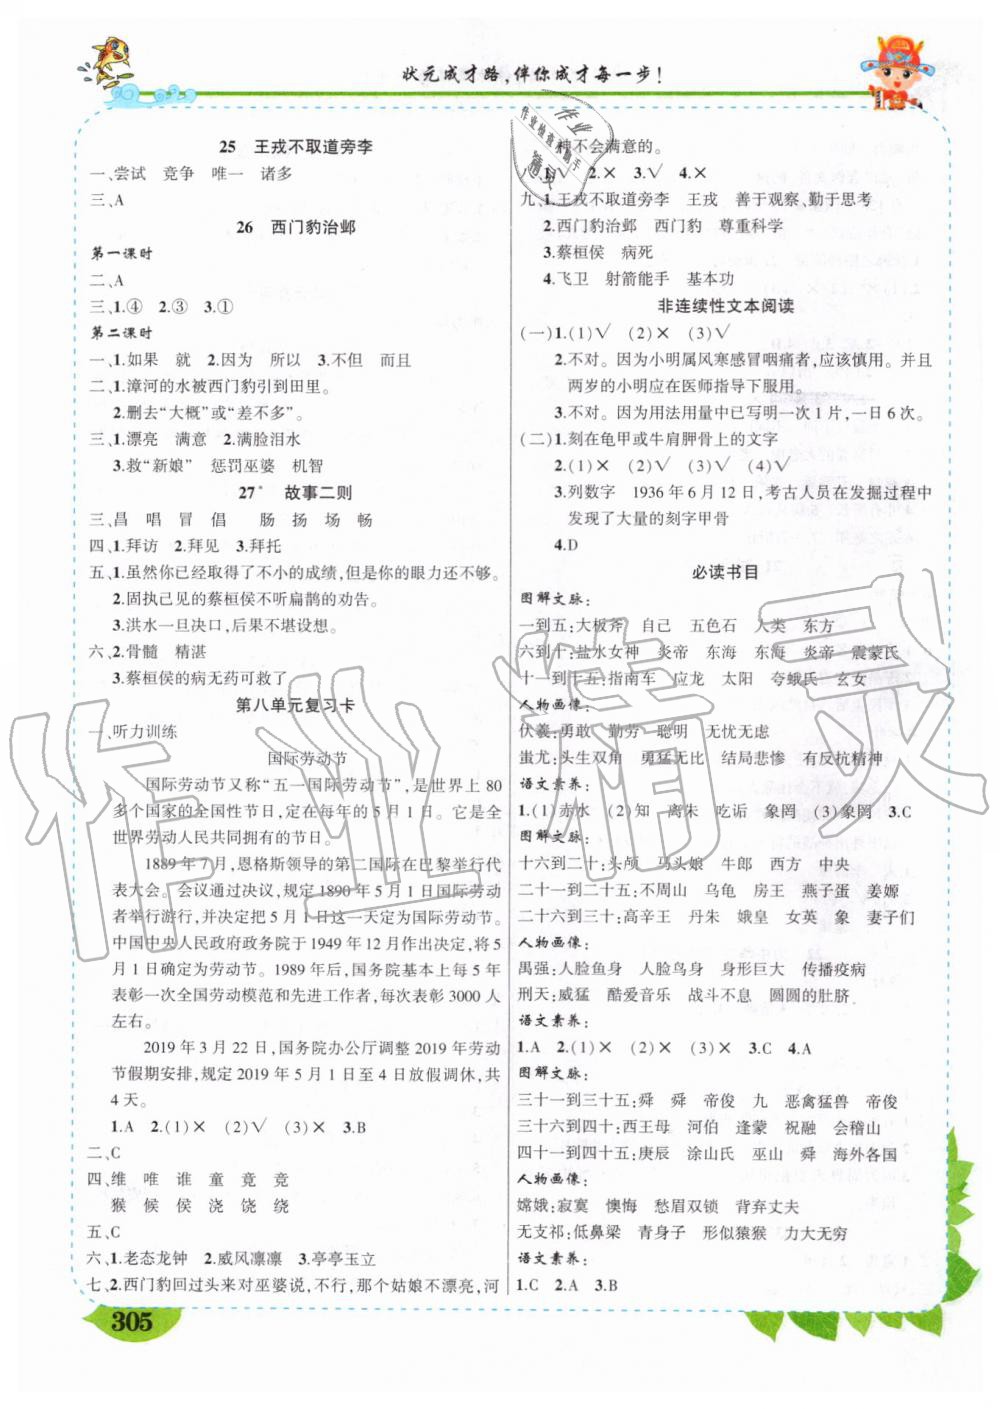 状元成才路,伴你成才每一步!
25 王戎不取道旁李
一、尝试 竞争 唯一 诸多
三、A
26 西门豹治邺
第一课时
二、A
三、1.④ 2.③ 3.①
第二课时
一、1.如果 就 2.因为 所以 3.不但 而且
二、1.漳河的水被西门豹引到田里。
2.删去“大概”或“差不多”。
三、1.漂亮 满意 2.满脸泪水
3.救“新娘” 惩罚巫婆 机智
27* 故事二则
三、昌 唱 冒 倡 肠 扬 场 畅
四、1.拜访 2.拜见 3.拜托
五、1.虽然你已经取得了不小的成绩,但是你的眼力还不够。
2.固执己见的蔡桓侯不听扁鹊的劝告。
3.洪水一旦决口,后果不堪设想。
六、2.骨髓 精湛
3.蔡桓侯的病无药可救了
第八单元复习卡
一、听力训练
国际劳动节
国际劳动节又称“五一国际劳动节”,是世界上 80
多个国家的全国性节日,定在每年的 5 月 1 日。它是全
世界劳动人民共同拥有的节日。
1889 年 7 月,恩格斯领导的第二国际在巴黎举行代
表大会。会议通过决议,规定 1890 年 5 月 1 日国际劳动
者举行游行,并决定把 5 月 1 日这一天定为国际劳动节。
中国中央人民政府政务院于 1949 年 12 月作出决定,将 5
月 1 日确定为劳动节。1989 年后,国务院基本上每 5 年
表彰一次全国劳动模范和先进工作者,每次表彰 3000 人
左右。
2019 年 3 月 22 日,国务院办公厅调整 2019 年劳动
节假期安排,规定 2019 年 5 月 1 日至 4 日放假调休,共
4 天。
1.A 2.(1)× (2)√ (3)× 3.B
二、C
四、维 唯 谁 童 竟 竞
猴 候 侯 浇 饶 绕
五、C
六、1.老态龙钟 2.威风凛凛 3.亭亭玉立
七、2.西门豹回过头来对巫婆说,不行,那个姑娘不漂亮,河
神不会满意的。
八、1.√ 2.× 3.√ 4.×
九、1.王戎不取道旁李 王戎 善于观察,勤于思考
2.西门豹治邺 西门豹 尊重科学
3.蔡桓侯 病死
4.飞卫 射箭能手 基本功
非连续性文本阅读
(一)1.(1)√ (2)× (3)√
2.不对。因为小明属风寒感冒咽痛者,应该慎用。并且
两岁的小明应在医师指导下服用。
3.不对。因为用法用量中已写明一次 1 片,一日 6 次。
(二)1.刻在龟甲或牛肩胛骨上的文字
2.(1)× (2)× (3)√ (4)√
3.列数字 1936 年 6 月 12 日,考古人员在发掘过程中
发现了大量的刻字甲骨
4.D
必读书目
图解文脉:
一到五:大板斧 自己 五色石 人类 东方
六到十:盐水女神 炎帝 东海 东海 炎帝 震蒙氏
十一到十五:指南车 应龙 太阳 夸娥氏 玄女
人物画像:
伏羲:勇敢 勤劳 聪明 无忧无虑
蚩尤:头生双角 勇猛无比 结局悲惨 有反抗精神
语文素养:
1.(1)赤水 (2)知 离朱 吃诟 象罔 (3)象罔 3.C
图解文脉:
十六到二十:头颅 马头娘 牛郎 西方 中央
二十一到二十五:不周山 乌龟 房王 燕子蛋 姜嫄
二十六到三十:高辛王 丹朱 娥皇 女英 象 妻子们
人物画像:
禺强:人脸鱼身 人脸鸟身 身形巨大 传播疫病
刑天:威猛 酷爱音乐 战斗不息 圆圆的肚脐
语文素养:
1.A 2.(1)× (2)× (3)× 3.C 4.A
图解文脉:
三十一到三十五:舜 舜 帝俊 九 恶禽猛兽 帝俊
三十六到四十:西王母 河伯 逢蒙 祝融 会稽山
四十一到四十五:庚辰 涂山氏 巫山 舜 海外各国
人物画像:
嫦娥:寂寞 懊悔 愁眉双锁 背弃丈夫
无支祁:低鼻梁 青身子 形似猿猴 力大无穷
语文素养:
1.C 2.A 3.B
305
作业精灵
作业检查小助手
作业精灵